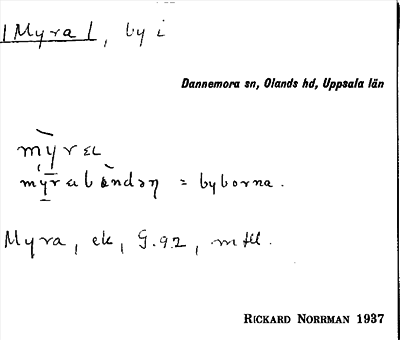 [Myra], by i
Dannemora sn, Olands hd, Uppsala län
mỳra
= byborna.
Myra, ek, G.92, mtl.
RICKARD NORRMAN 1937